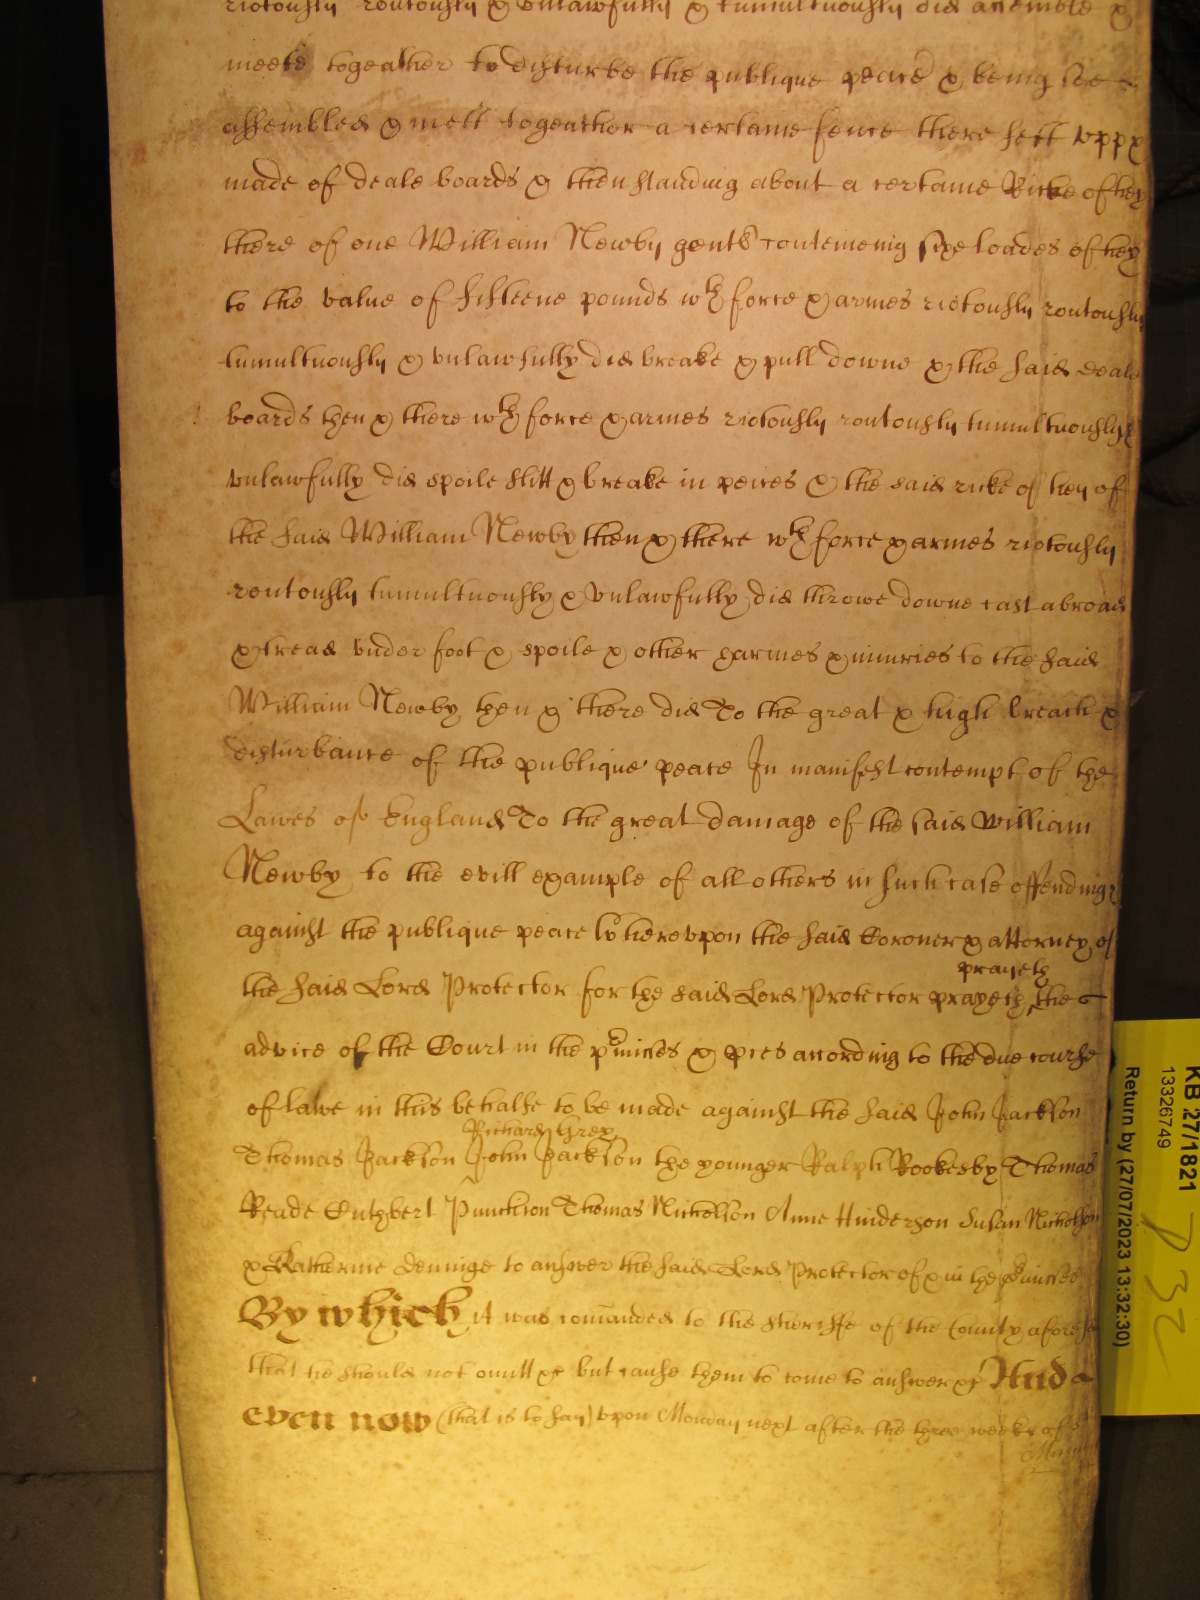 riotously routously & vnlawfully & tumultuously did assemble &
meete togeather to disturbe the publique peace & being soe
assembled & mett togeather a certaine fence there sett vpp &
made of deale boards & then standing about a certaine Ricke of hey
there of one William Newby gent conteineing sixe loades of hey
to the value of fifteene pounds wth force & armes riotously routously
tumultuously & vnlawfully did breake & pull downe & the said deale
boards then & there wth force & armes riotously routously tumultuously &
vnlawfully did spoile slitt & breake in peices & the said ricke of hey of
the said William Newby then & there wth force & armes riotously
routously tumultuously & vnlawfully did throwe downe cast abroad
& tread vnder foot & spoile & other harmes & iniuries to the said
William Newby then & there did To the great & high breach &
disturbance of the publique peace In manifest contempt of the
Lawes of England To the great damage of the said William
Newby to the evill example of all others in such case offending &
against the publique peace Wherevpon the said Coroner & attorney of
the said Lord Protector for the said Lord Protector prayeth prayeth the
advice of the Court in the pmisses & pces according to the due course
of lawe in this behalfe to be made against the said John Jackson
Thomas Jackson Richard Grey John Jackson the younger Ralph Rookesby Thomas
Reade Cuthbert Punchion Thomas Nicholson Anne Hinderson Susan Nicholson
& Katherine Deninge to answer the said Lord Protector of & in the pmisses
By which it was comanded to the Sherriffe of the County aforesd
that he should not omitt &c but cause them to come to answer &c And
even now (that is to say) vpon Monday next after the three weekes of St
KB 27/1821
13326749
Return by (27/07/2023 13:32:30)
P 32